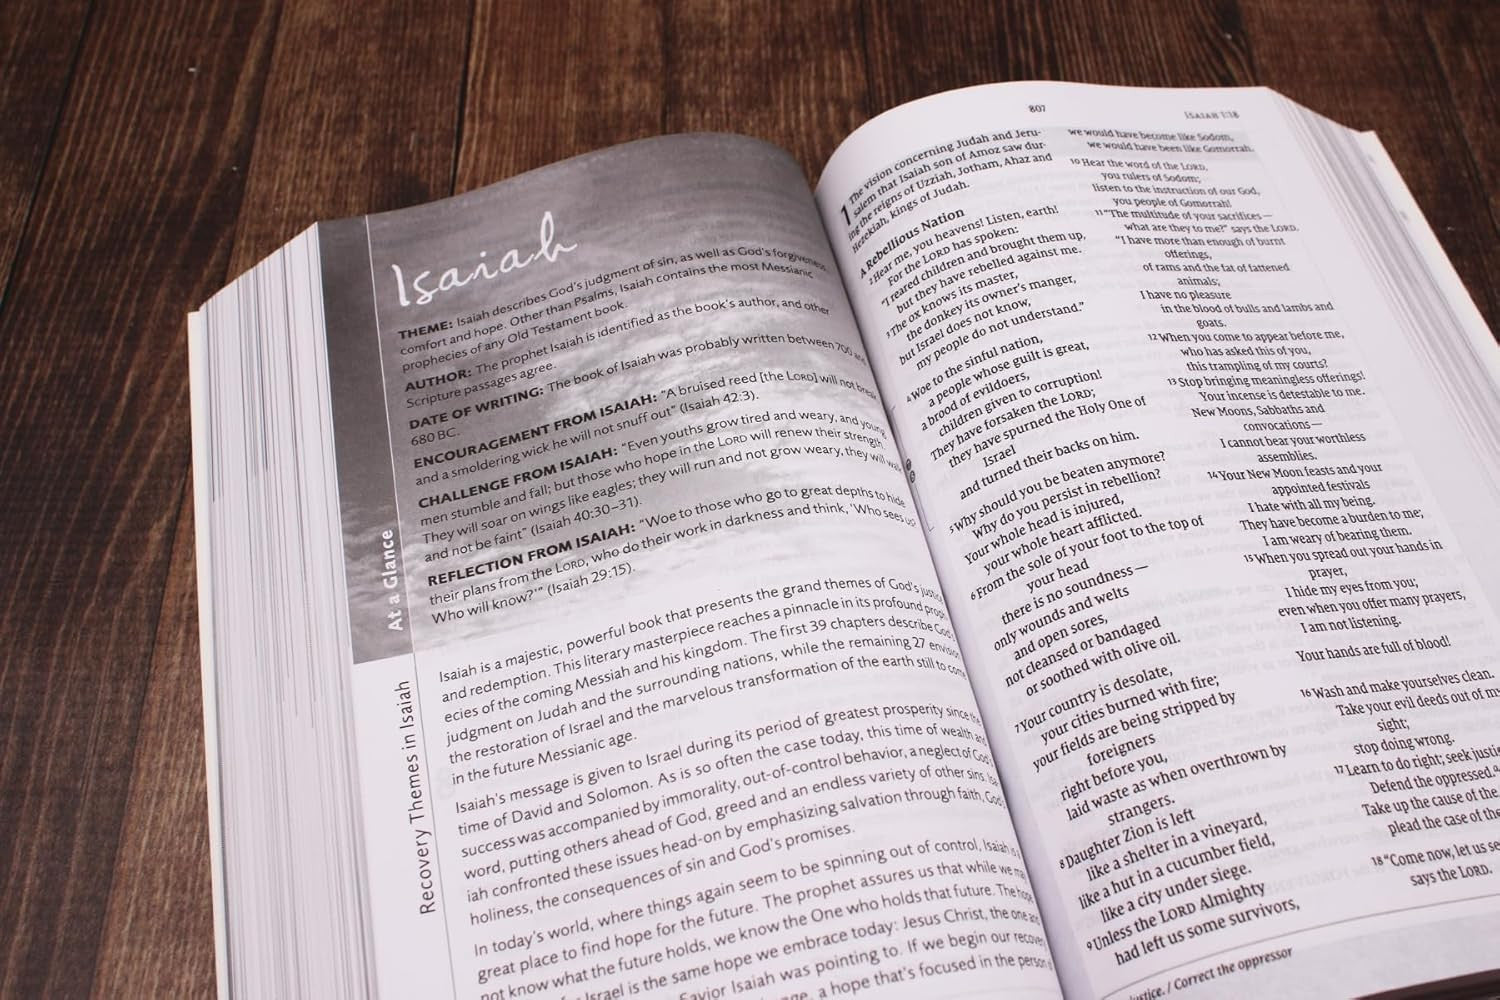 Isaiah
THEME: Isaiah describes God's judgment of sin, as well as God's forgiveness,
comfort and hope. Other than Psalms, Isaiah contains the most Messianic
prophecies of any Old Testament book.
AUTHOR: The prophet Isaiah is identified as the book's author, and other
Scripture passages agree.
DATE OF WRITING: The book of Isaiah was probably written between 700 and
680 BC.
ENCOURAGEMENT FROM ISAIAH: "A bruised reed [the LORD] will not break,
and a smoldering wick he will not snuff out" (Isaiah 42:3).
CHALLENGE FROM ISAIAH: "Even youths grow tired and weary, and young
men stumble and fall; but those who hope in the LORD will renew their strength.
They will soar on wings like eagles; they will run and not grow weary, they will walk
and not be faint" (Isaiah 40:30–31).
REFLECTION FROM ISAIAH: "Woe to those who go to great depths to hide
their plans from the LORD, who do their work in darkness and think, 'Who sees us?
Who will know?'" (Isaiah 29:15).
At a Glance
Isaiah is a majestic, powerful book that presents the grand themes of God's justice
and redemption. This literary masterpiece reaches a pinnacle in its profound proph-
ecies of the coming Messiah and his kingdom. The first 39 chapters describe God's
judgment on Judah and the surrounding nations, while the remaining 27 envision
the restoration of Israel and the marvelous transformation of the earth still to come
in the future Messianic age.
Isaiah's message is given to Israel during its period of greatest prosperity since the
time of David and Solomon. As is so often the case today, this time of wealth and
success was accompanied by immorality, out-of-control behavior, a neglect of God's
word, putting others ahead of God, greed and an endless variety of other sins. Isa-
iah confronted these issues head-on by emphasizing salvation through faith, God's
holiness, the consequences of sin and God's promises.
In today's world, where things again seem to be spinning out of control, Isaiah is a
great place to find hope for the future. The prophet assures us that while we may
not know what the future holds, we know the One who holds that future. The hope
for Israel is the same hope we embrace today: Jesus Christ, the one and
Savior Isaiah was pointing to. If we begin our recovery
a hope that's focused in the person of
Recovery Themes in Isaiah
807
ISAIAH 1:18
1 The vision concerning Judah and Jeru-
salem that Isaiah son of Amoz saw dur-
ing the reigns of Uzziah, Jotham, Ahaz and
Hezekiah, kings of Judah.
A Rebellious Nation
2 Hear me, you heavens! Listen, earth!
For the LORD has spoken:
"I reared children and brought them up,
but they have rebelled against me.
3 The ox knows its master,
the donkey its owner's manger,
but Israel does not know,
my people do not understand."
4 Woe to the sinful nation,
a people whose guilt is great,
a brood of evildoers,
children given to corruption!
They have forsaken the LORD;
they have spurned the Holy One of
Israel
and turned their backs on him.
5 Why should you be beaten anymore?
Why do you persist in rebellion?
Your whole head is injured,
your whole heart afflicted.
6 From the sole of your foot to the top of
your head
there is no soundness—
only wounds and welts
and open sores,
not cleansed or bandaged
or soothed with olive oil.
7 Your country is desolate,
your cities burned with fire;
your fields are being stripped by
foreigners
right before you,
laid waste as when overthrown by
strangers.
8 Daughter Zion is left
like a shelter in a vineyard,
like a hut in a cucumber field,
like a city under siege.
9 Unless the LORD Almighty
had left us some survivors,
we would have become like Sodom,
we would have been like Gomorrah.
10 Hear the word of the LORD,
you rulers of Sodom;
listen to the instruction of our God,
you people of Gomorrah!
11 "The multitude of your sacrifices—
what are they to me?" says the LORD.
"I have more than enough of burnt
offerings,
of rams and the fat of fattened
animals;
I have no pleasure
in the blood of bulls and lambs and
goats.
12 When you come to appear before me,
who has asked this of you,
this trampling of my courts?
13 Stop bringing meaningless offerings!
Your incense is detestable to me.
New Moons, Sabbaths and
convocations—
I cannot bear your worthless
assemblies.
14 Your New Moon feasts and your
appointed festivals
I hate with all my being.
They have become a burden to me;
I am weary of bearing them.
15 When you spread out your hands in
prayer,
I hide my eyes from you;
even when you offer many prayers,
I am not listening.
Your hands are full of blood!
16 Wash and make yourselves clean.
Take your evil deeds out of my
sight;
stop doing wrong.
17 Learn to do right; seek justice.
Defend the oppressed.
Take up the cause of the
plead the case of the
18 "Come now, let us se
says the LORD.
justice. / Correct the oppressor